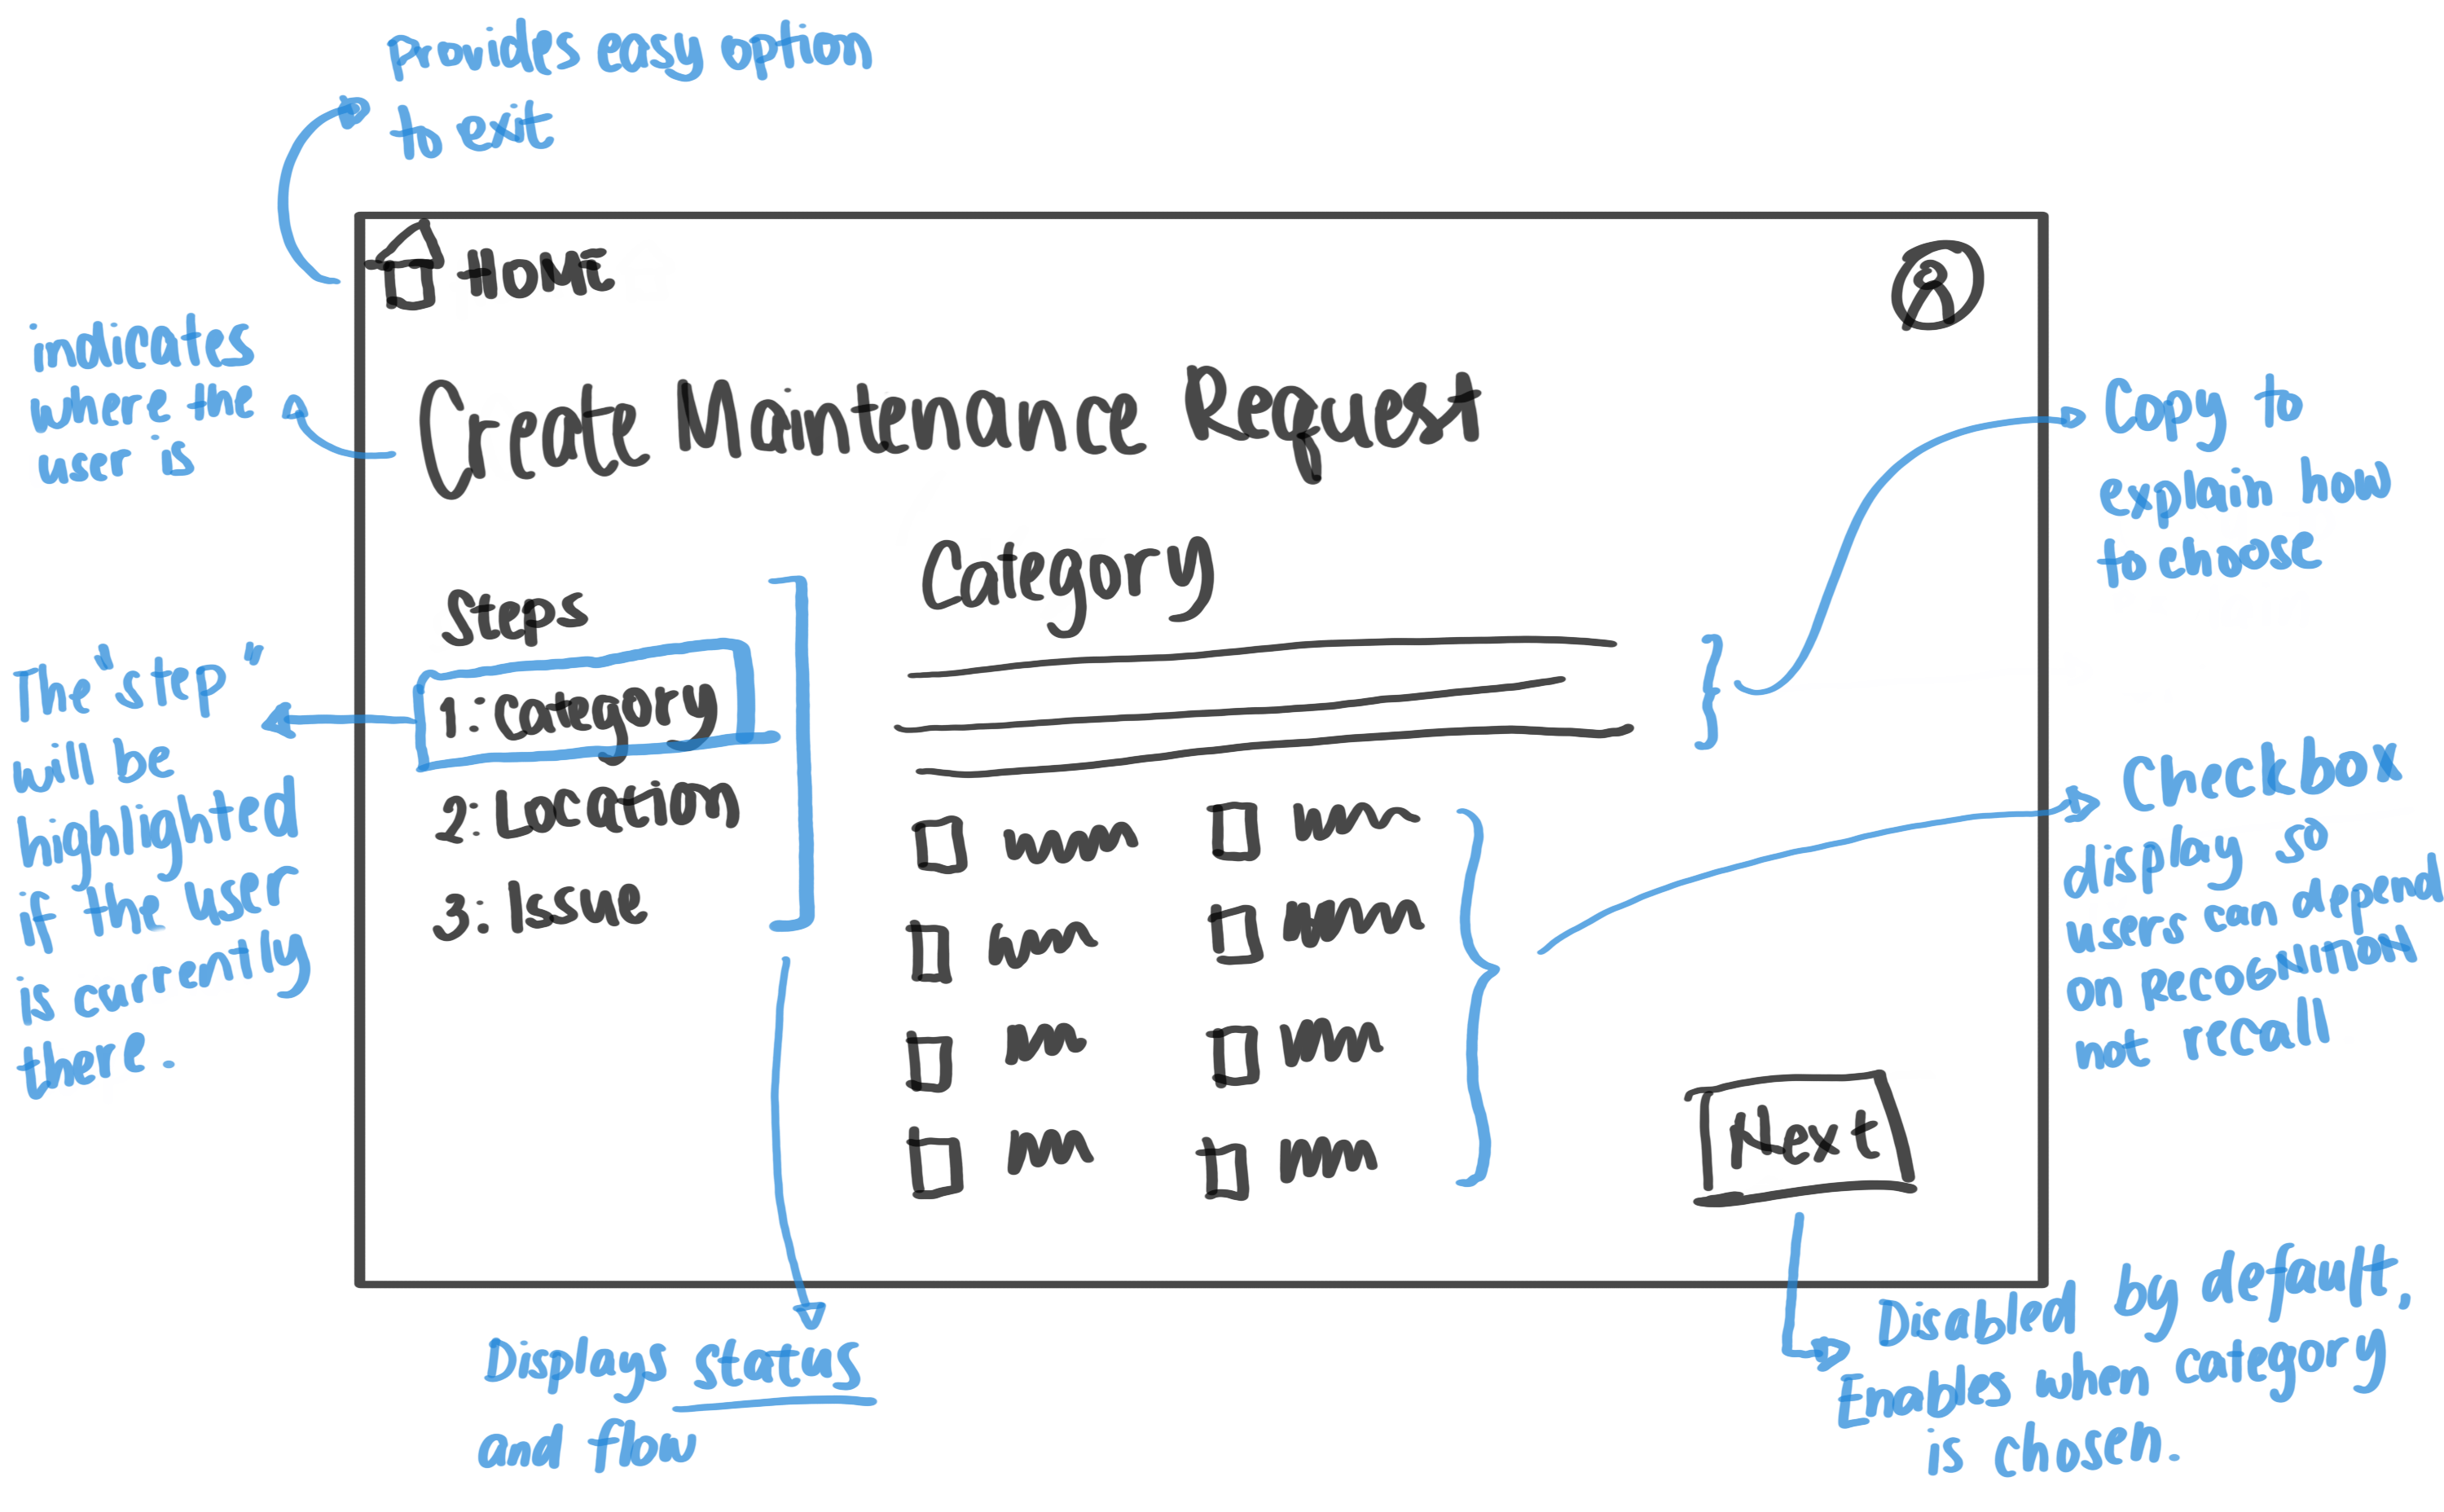 Provides easy option
to exit
HOME
indicates
where the
user is
Create Maintenance Request
Copy to
explain how
to choose
Category
Steps
1: Category
2: Location
3: Issue
The "step"
will be
highlighted
if the user
is currently
there.
Checkbox
display so
users can depend
on RECOGNITION
not recall
Next
Displays status
and flow
Disabled by default,
Enables when category
is chosen.